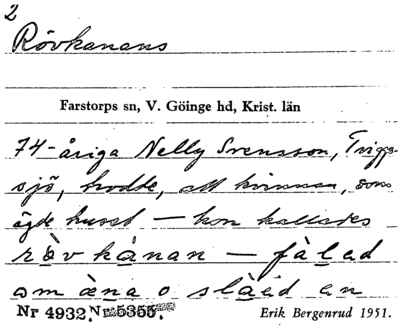 2
Rövkanans
Farstorps sn, V. Göinge hd, Krist. län
74-åriga Nelly Svensson, Trigga-
sjö, trodde, att kvinnan, som
ägde huset — hon kallades
rävkånan — fålad
om æna o slåed en
Nr 4932. Nr 5355. Erik Bergenrud 1951.